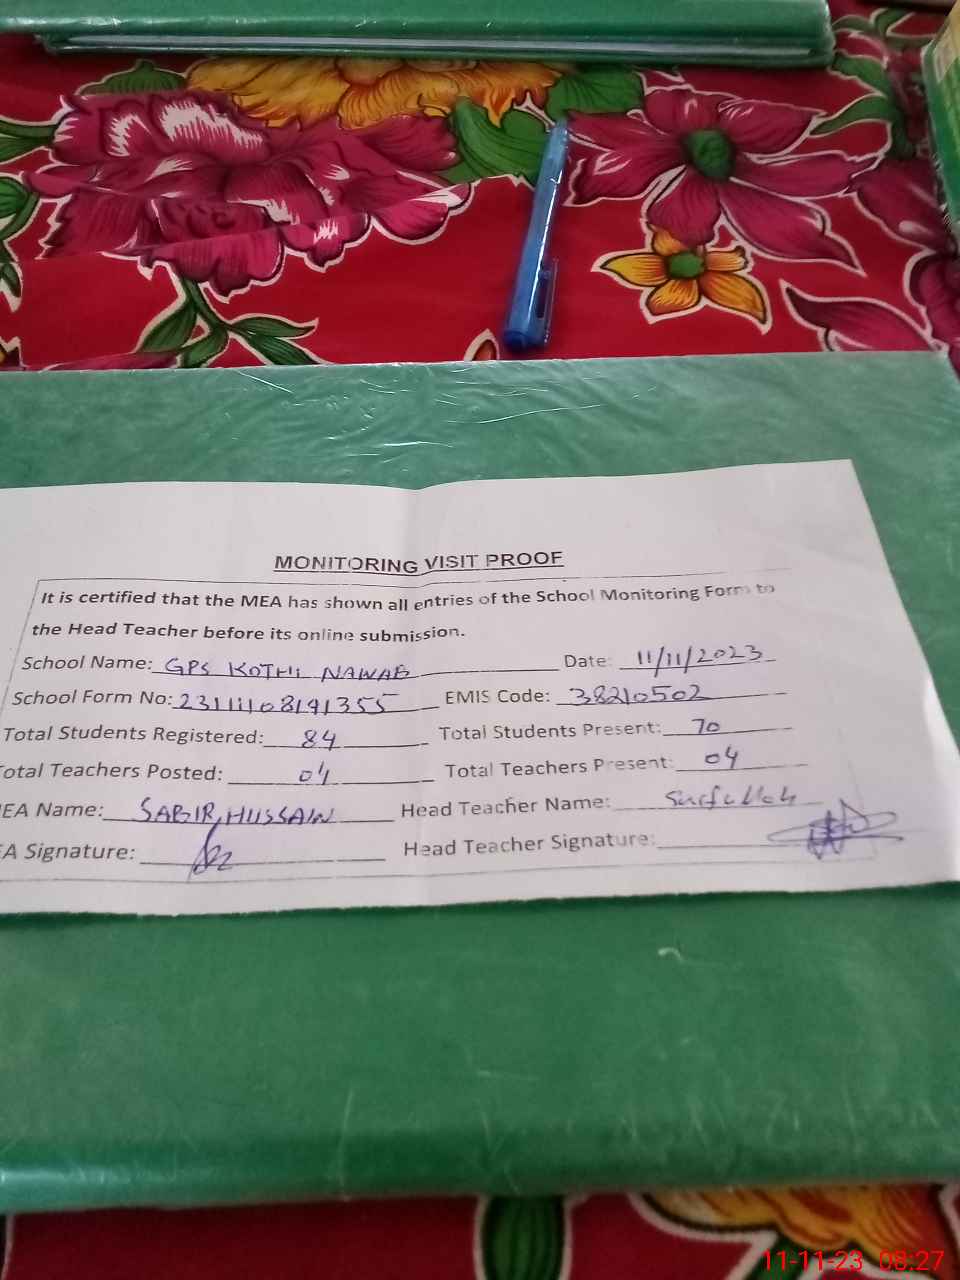 MONITORING VISIT PROOF
It is certified that the MEA has shown all entries of the School Monitoring Form to
the Head Teacher before its online submission.
School Name: GPS KOTHI NAWAB Date: 11/11/2023
School Form No: 23111108191355 EMIS Code: 38210502
Total Students Registered: 84 Total Students Present: 70
Total Teachers Posted: 04 Total Teachers Present: 04
EA Name: SABIR HUSSAIN Head Teacher Name:
A Signature: Head Teacher Signature:
11-11-23 08:27